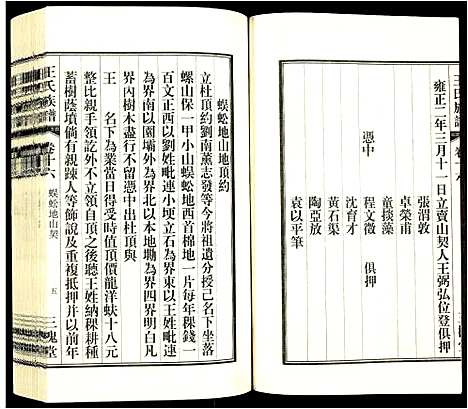 王氏族譜
雍正二年三月十一日立賣山契人王弼弘位登俱押
張渭敦
卓榮甫
童掞藻
憑中
程文微 俱押
沈育才
黃石渠
陶亞放
袁以平筆
蜈蚣地山地頂約
立杜頂約劉南薰志發等今將祖遺分授己名下坐落
螺山保一甲小山蜈蚣地西首棉地一片每年稞錢一
百文正西以劉姓毗連小埂立石為界東以王姓毗連
為界南以園壩外為界北以本地坳為界四界明白凡
界內樹木盡行不留憑中出杜頂與
王 名下為業當日得受時值頂價龍洋蚨十八元
整比親手領訖外不立領自頂之後聽王姓納稞耕種
蓄樹蔭墳倘有親踈人等飾說及重複抵押并以前年
王氏族譜
卷十六
蜈蚣地山契
五
三槐堂